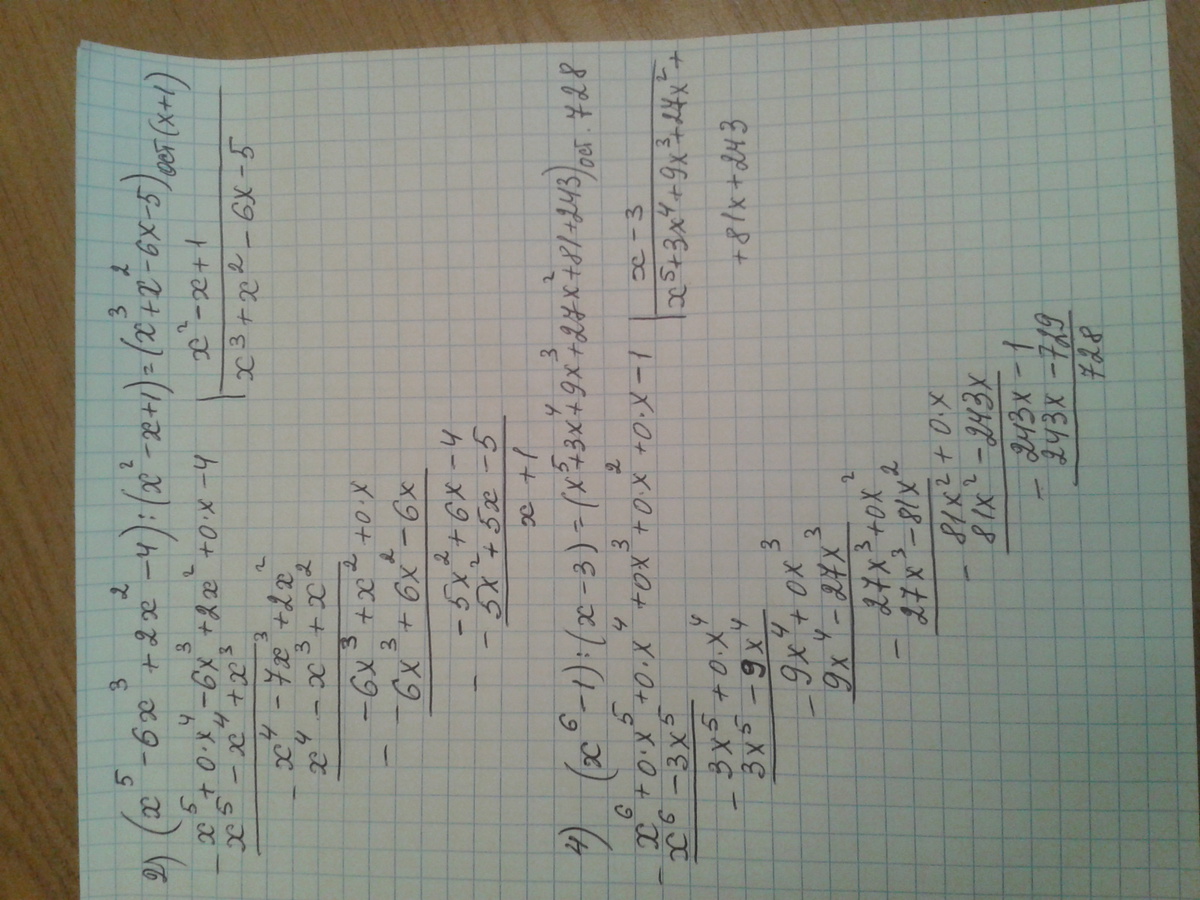 2) (x⁵ - 6x³ + 2x² - 4) : (x² - x + 1) = (x³ + x² - 6x - 5) ост (x+1)
- x⁵ + 0·x⁴ - 6x³ + 2x² + 0·x - 4 | x² - x + 1
x⁵ - x⁴ + x³ | x³ + x² - 6x - 5
- x⁴ - 7x³ + 2x²
x⁴ - x³ + x²
- -6x³ + x² + 0·x
-6x³ + 6x² - 6x
- -5x² + 6x - 4
-5x² + 5x - 5
x + 1
4) (x⁶ - 1) : (x - 3) = (x⁵ + 3x⁴ + 9x³ + 27x² + 81 + 243) ост. 728
- x⁶ + 0·x⁵ + 0·x⁴ + 0x³ + 0·x² + 0·x - 1 | x - 3
x⁶ - 3x⁵ | x⁵ + 3x⁴ + 9x³ + 27x² +
- 3x⁵ + 0·x⁴ + 81x + 243
3x⁵ - 9x⁴
- 9x⁴ + 0x³
9x⁴ - 27x³
- 27x³ + 0x²
27x³ - 81x²
- 81x² + 0·x
81x² - 243x
- 243x - 1
243x - 729
728